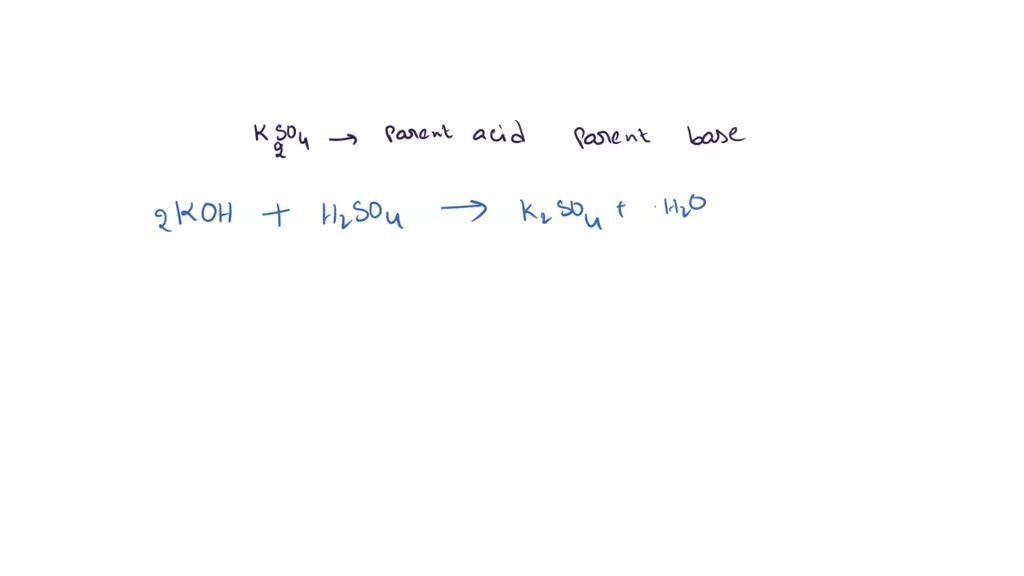 K₂SO₄ → Parent acid Parent base
2KOH + H₂SO₄ → K₂SO₄ + H₂O